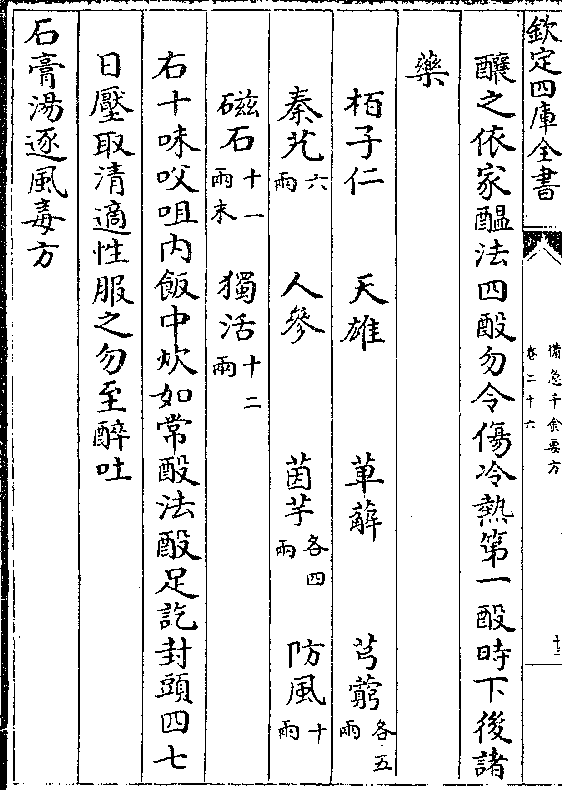 欽定四庫全書
備急千金要方
卷二十六
十三
釀之依家醖法四酘勿令傷冷熱第一酘時下後諸
藥
栢子仁 天雄 萆薢 芎藭各五兩
秦艽六兩 人參 茵芋各四兩 防風十兩
磁石十一兩末 獨活十二兩
右十味㕮咀内飯中炊如常酘法酘足訖封頭四七
日壓取清適性服之勿至醉吐
石膏湯逐風毒方